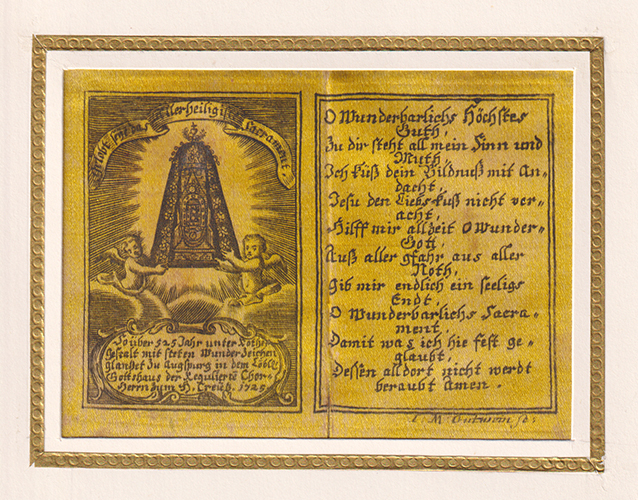 Gelobt seye das Allerheiligiste Sacrament.
So über 525 Jahr unter Rother
gestalt mit steten Wunder Zeichen
glantzet zu Augspurg in dem Löbl:
Gottshaus der Regulierte Chor-
Herrn zum H. Creütz. 1725
O Wunderbarlichs Höchstes
Guth,
Zu dir steht all mein Sinn und
Muth,
Ich küß dein Bildnuß mit An-
dacht,
Jesu den Liebs-kuß nicht ver-
acht,
Hilff mir allzeit O Wunder-
Gott,
Auß aller gfahr aus aller
Noth,
Gib mir endlich ein seeligs
Endt,
O Wunderbarlichs Sacra-
ment,
Damit was ich hie fest ge-
glaubt,
Dessen alldort nicht werdt
beraubt Amen.